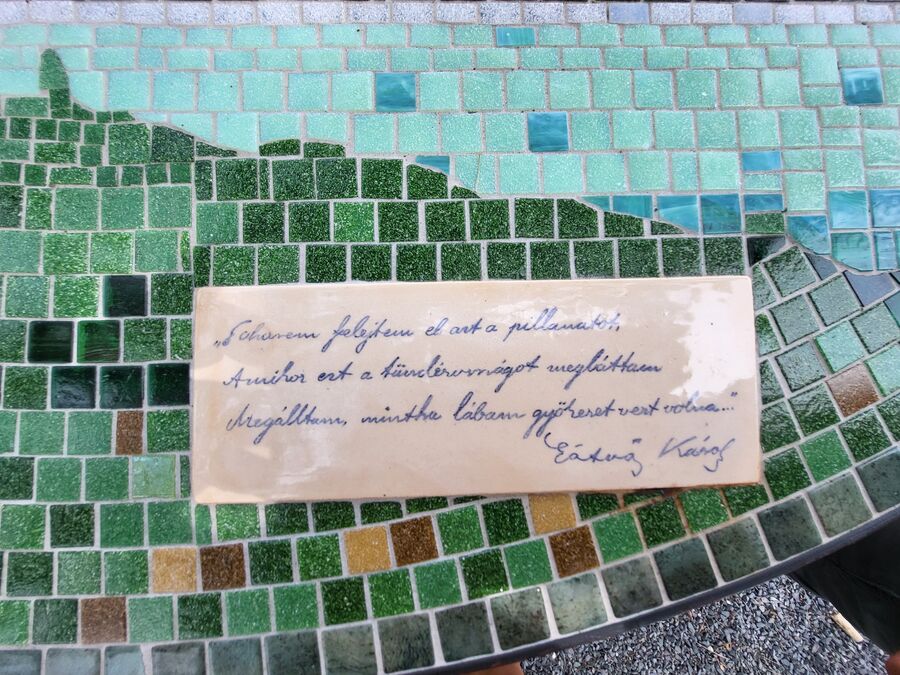 „Soharem felejtem el azt a pillanatot,
Amikor ezt a tündérországot megláttam
Megálltam, mintha lábam gyökeret vert volna..."
Eötvös Károly